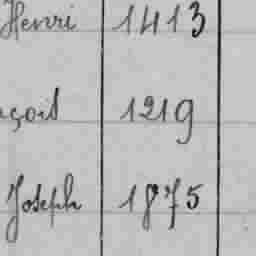 Henri 1413
çois 1219
Joseph 1875